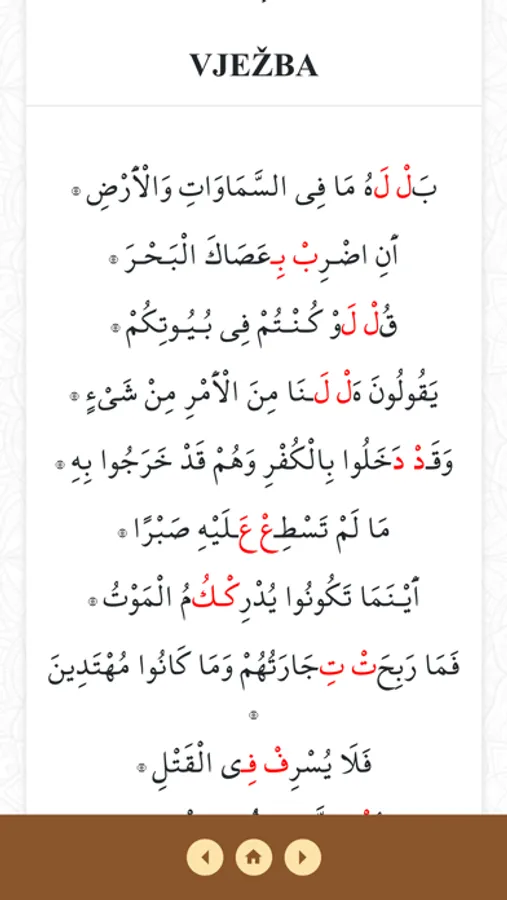 VJEŽBA
بَلْ لَهُ مَا فِى السَّمَاوَاتِ وَالْاَرْضِ ۞
اَنِ اضْرِبْ بِعَصَاكَ الْبَحْرَ ۞
قُلْ لَوْ كُنْتُمْ فِى بُيُوتِكُمْ ۞
يَقُولُونَ هَلْ لَنَا مِنَ الْاَمْرِ مِنْ شَىْءٍ ۞
وَقَدْ دَخَلُوا بِالْكُفْرِ وَهُمْ قَدْ خَرَجُوا بِهِ ۞
مَا لَمْ تَسْطِعْ عَلَيْهِ صَبْرًا ۞
اَيْنَمَا تَكُونُوا يُدْرِكْكُمُ الْمَوْتُ ۞
فَمَا رَبِحَتْ تِجَارَتُهُمْ وَمَا كَانُوا مُهْتَدِينَ
۞
فَلَا يُسْرِفْ فِى الْقَتْلِ ۞